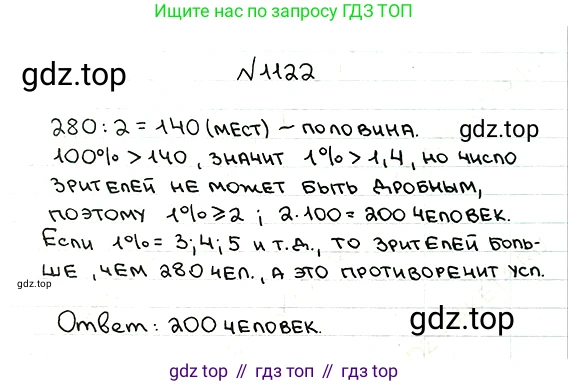 Ищите нас по запросу ГДЗ ТОП
gdz.top
№1122
280:2=140 (мест) – половина.
100%>140, значит 1%>1,4, но число
gdz.top
зрителей не может быть дробным,
поэтому 1%⩾2; 2·100=200 человек.
Если 1%=3;4;5 и т.д., то зрителей боль-
ше, чем 280 чел., а это противоречит усл.
gdz.top
Ответ: 200 человек.
gdz.top
gdz top // гдз топ // гдз.топ